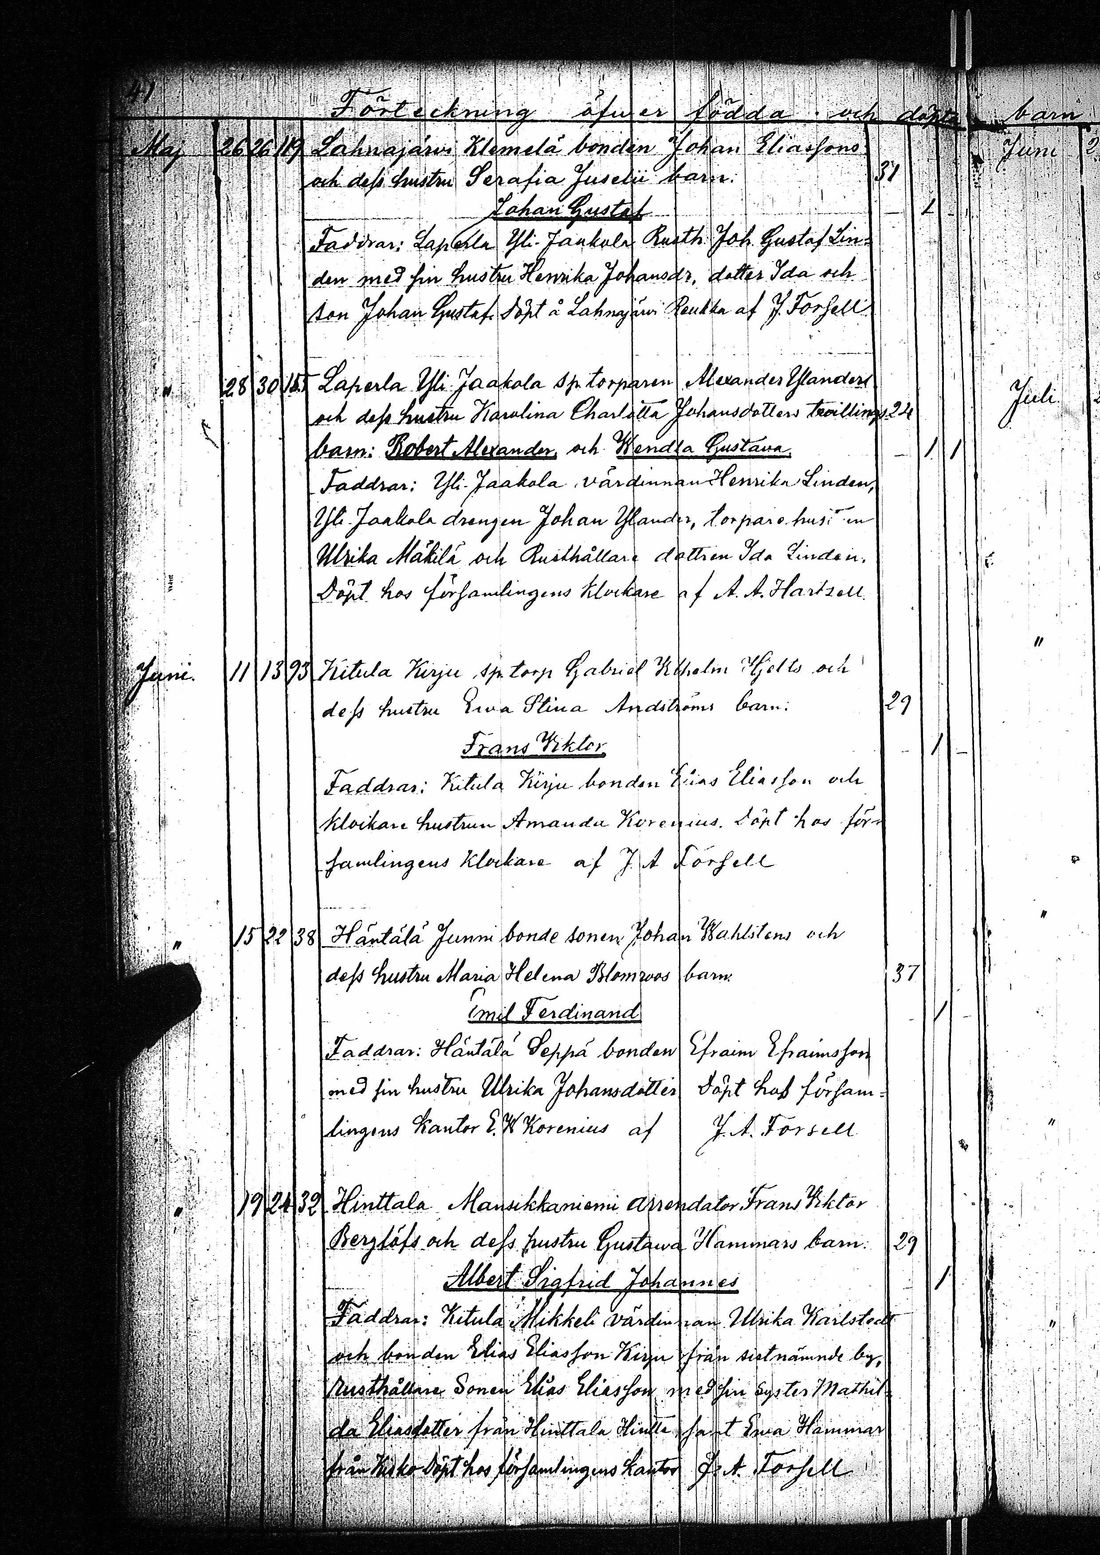 41
Förteckning öfver födda och döpta barn
Maj 26 26 119 Lahnajärvi Klemelä bonden Johan Eliassons
och dess hustru Serafia Juselii barn: 31
Johan Gustaf 1
Faddrar: Laperla Yli-Jaakola Rusth. Joh. Gustaf Lin=
den med sin hustru Henrika Johansdr, dotter Ida och
son Johan Gustaf. Döpt å Lahnajärvi Reukka af J. Forsell
" 28 30 Laperla Yli Jaakola sp. torparen Alexander Ylanders
och dess hustru Karolina Charlotta Johansdotters tvillings 24
barn: Robert Alexander och Wendla Gustava. 1 1
Faddrar: Yli-Jaakola värdinnan Henrika Linden,
Yli-Jaakola drengen Johan Ylander, torpare hustrun
Ulrika Mäkilä och Rusthållare dottren Ida Linden.
Döpt hos församlingens klockare af A. A. Hartzell.
Juni. 11 13 93 Kitula Kirju sp. torp Gabriel Wilhelm Hjelts och
dess hustru Ewa Stina Andströms barn: 29
Frans Viktor 1
Faddrar: Kitula Kirju bonden Elias Eliasson och
klockare hustrun Amanda Korenius. Döpt hos för=
samlingens klockare af J. A Forsell
" 15 22 38 Häntälä Junni bonde sonen Johan Wahlstens och
dess hustru Maria Helena Blomroos barn: 37
Emil Ferdinand 1
Faddrar: Häntälä Seppä bonden Efraim Efraimsson
med sin hustru Ulrika Johansdotter Döpt hos försam=
lingens Kantor E. W Korenius af J. A. Forsell
" 19 24 32 Hinttala Mansikkaniemi arrendator Frans Viktor
Berglöfs och dess hustru Gustawa Hammars barn: 29
Albert Sigfrid Johannes 1
Faddrar: Kitula Mikkeli värdinnan Ulrika Karlstedt
och bonden Elias Eliasson Kirju från sistnämnde by,
Rusthållare Sonen Elias Eliasson med sin syster Mathil=
da Eliasdotter från Hinttala Hintta samt Ewa Hammar
från Kisko Döpt hos församlingens kantor J. A. Forsell
Juni
Juli
"
"
"
"